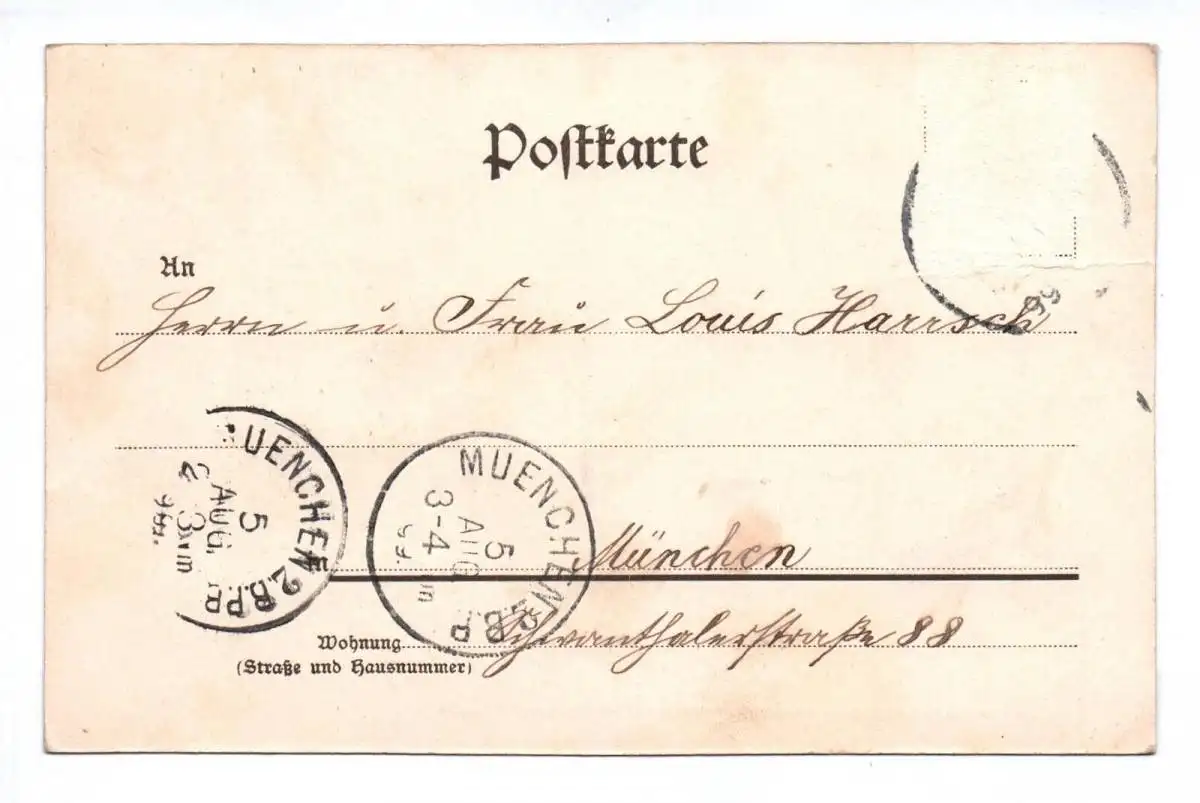 Postkarte
An
Herrn u. Frau Louis Harrsch
99
MUENCHEN 2.B.P.
5
AUG.
2-3
Nm
99.
MUENCHEN 2.B.P.
5
AUG
3-4
Nm
99.
in München
Wohnung Schwanthalerstraße 88
(Straße und Hausnummer)